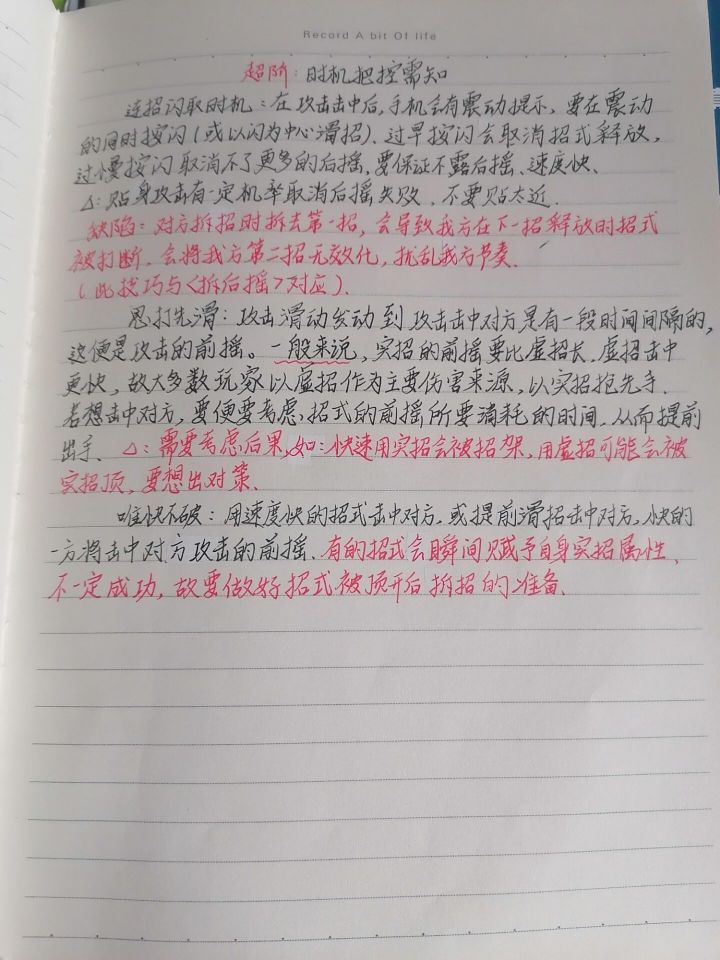 Record A bit Of life
超阶：时机把控需知
连招闪取时机：在攻击击中后，手机会有震动提示，要在震动
的同时按闪（或以闪为中心滑招）．过早按闪会取消招式释放，
过慢按闪取消不了更多的后摇，要保证不露后摇、速度快、
△：贴身攻击有一定机率取消后摇失败．不要贴太近．
缺陷：对方拆招时拆去第一招，会导致我方在下一招释放时招式
被打断．会将我方第二招无效化，扰乱我方节奏．
（此技巧与<拆后摇>对应）．
思打先滑：攻击滑动发动到攻击击中对方是有一段时间间隔的，
这便是攻击的前摇。一般来说，实招的前摇要比虚招长．虚招击中
更快，故大多数玩家以虚招作为主要伤害来源，以实招抢先手．
若想击中对方，要便要考虑招式的前摇所要消耗的时间，从而提前
出手、△：需要考虑后果，如：快速用实招会被招架，用虚招可能会被
实招顶，要想出对策．
唯快不破：用速度快的招式击中对方，或提前滑招击中对方，快的
一方将击中对方攻击的前摇．有的招式会瞬间赋予自身实招属性、
不一定成功，故要做好招式被顶开后拆招的准备．